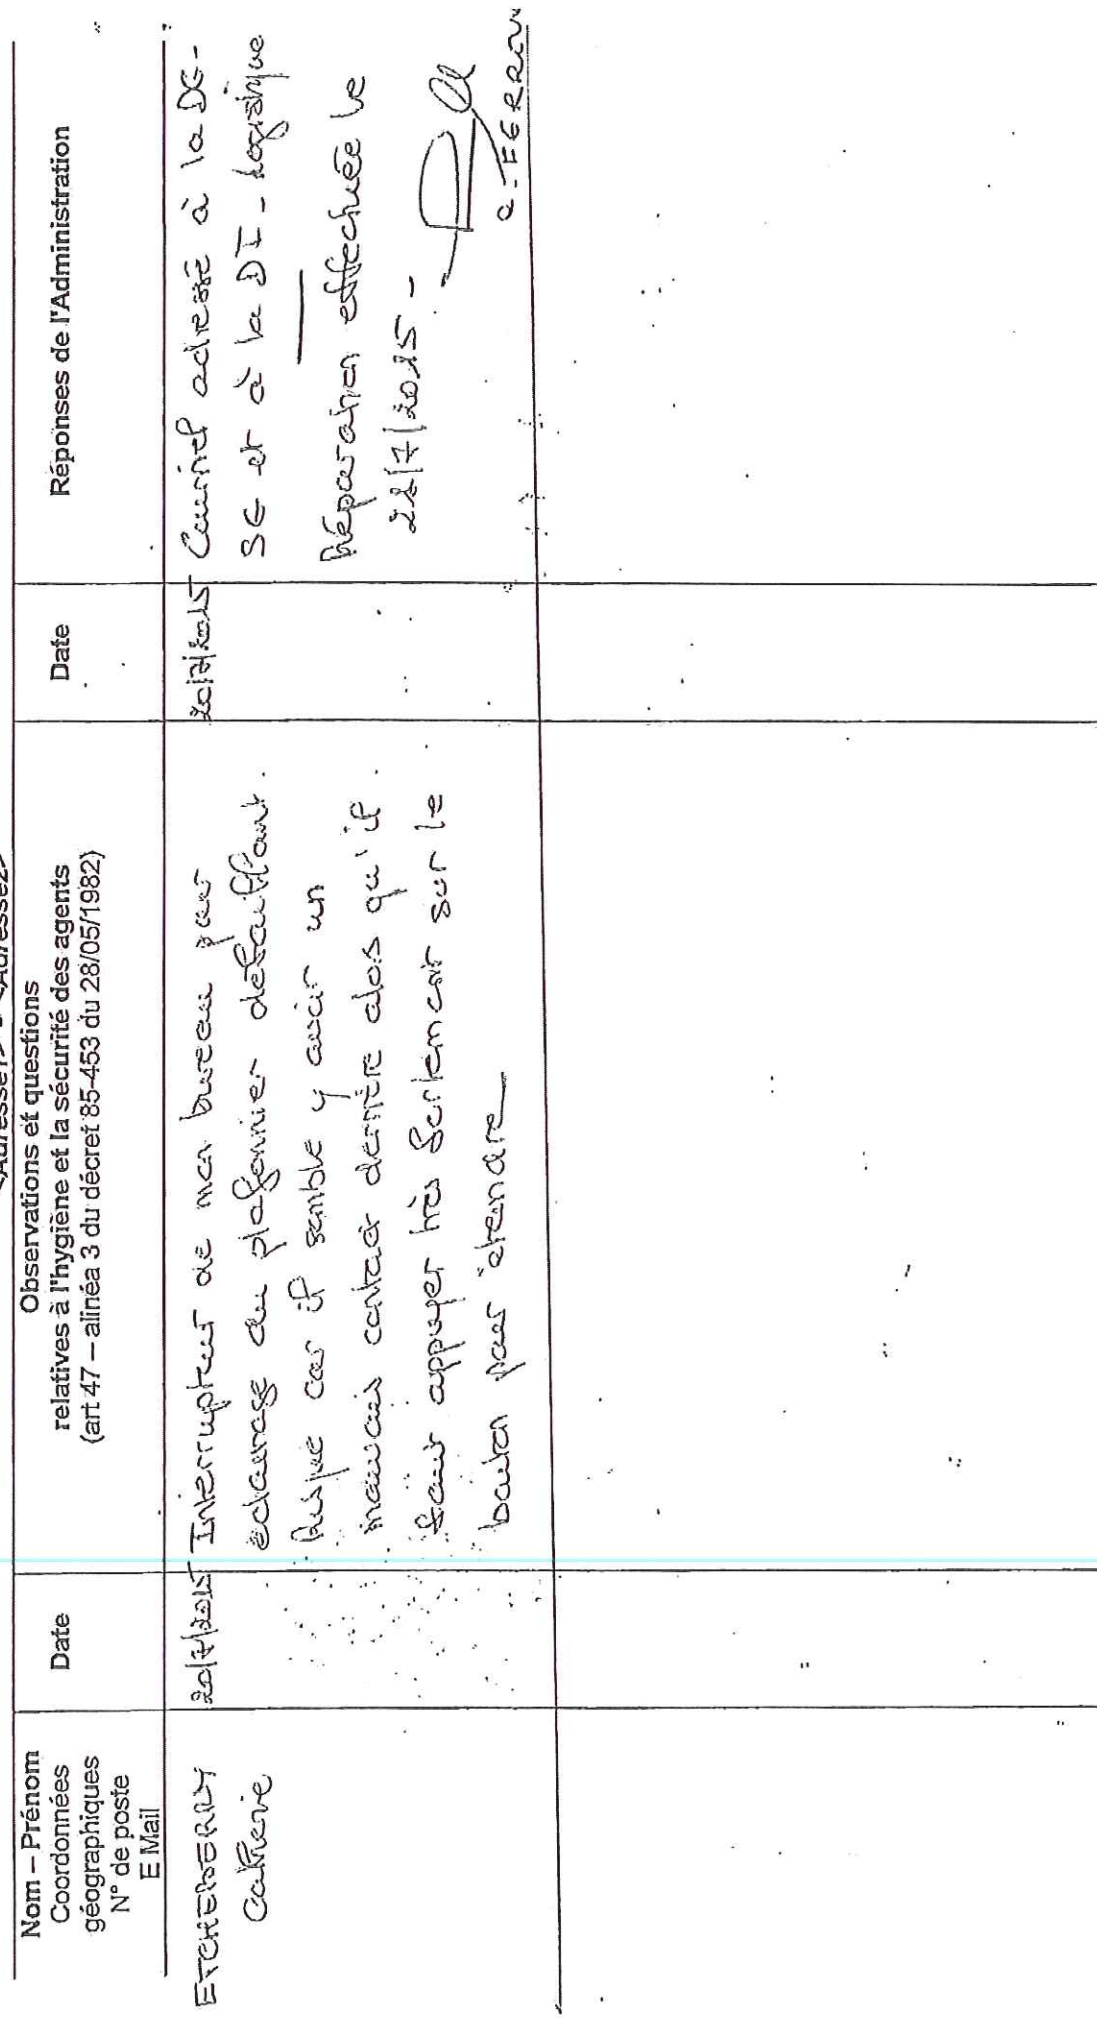 Nom – Prénom
Coordonnées
géographiques
N° de poste
E Mail
Date
Observations et questions
relatives à l'hygiène et la sécurité des agents
(art 47 – alinéa 3 du décret 85-453 du 28/05/1982)
Date
Réponses de l'Administration
ETCHEBERRY
Catherine
20/7/2015
Interrupteur de mon bureau pour
éclairage du plafonnier défaillant.
Risque car il semble y avoir un
mauvais contact derrière alors qu'il
faut appuyer très fortement sur le
bouton pour éteindre
20/7/2015
Courriel adressé à la DG-
SG et à la DI - Logistique
Réparation effectuée le
22/7/2015 -
C. FERRON